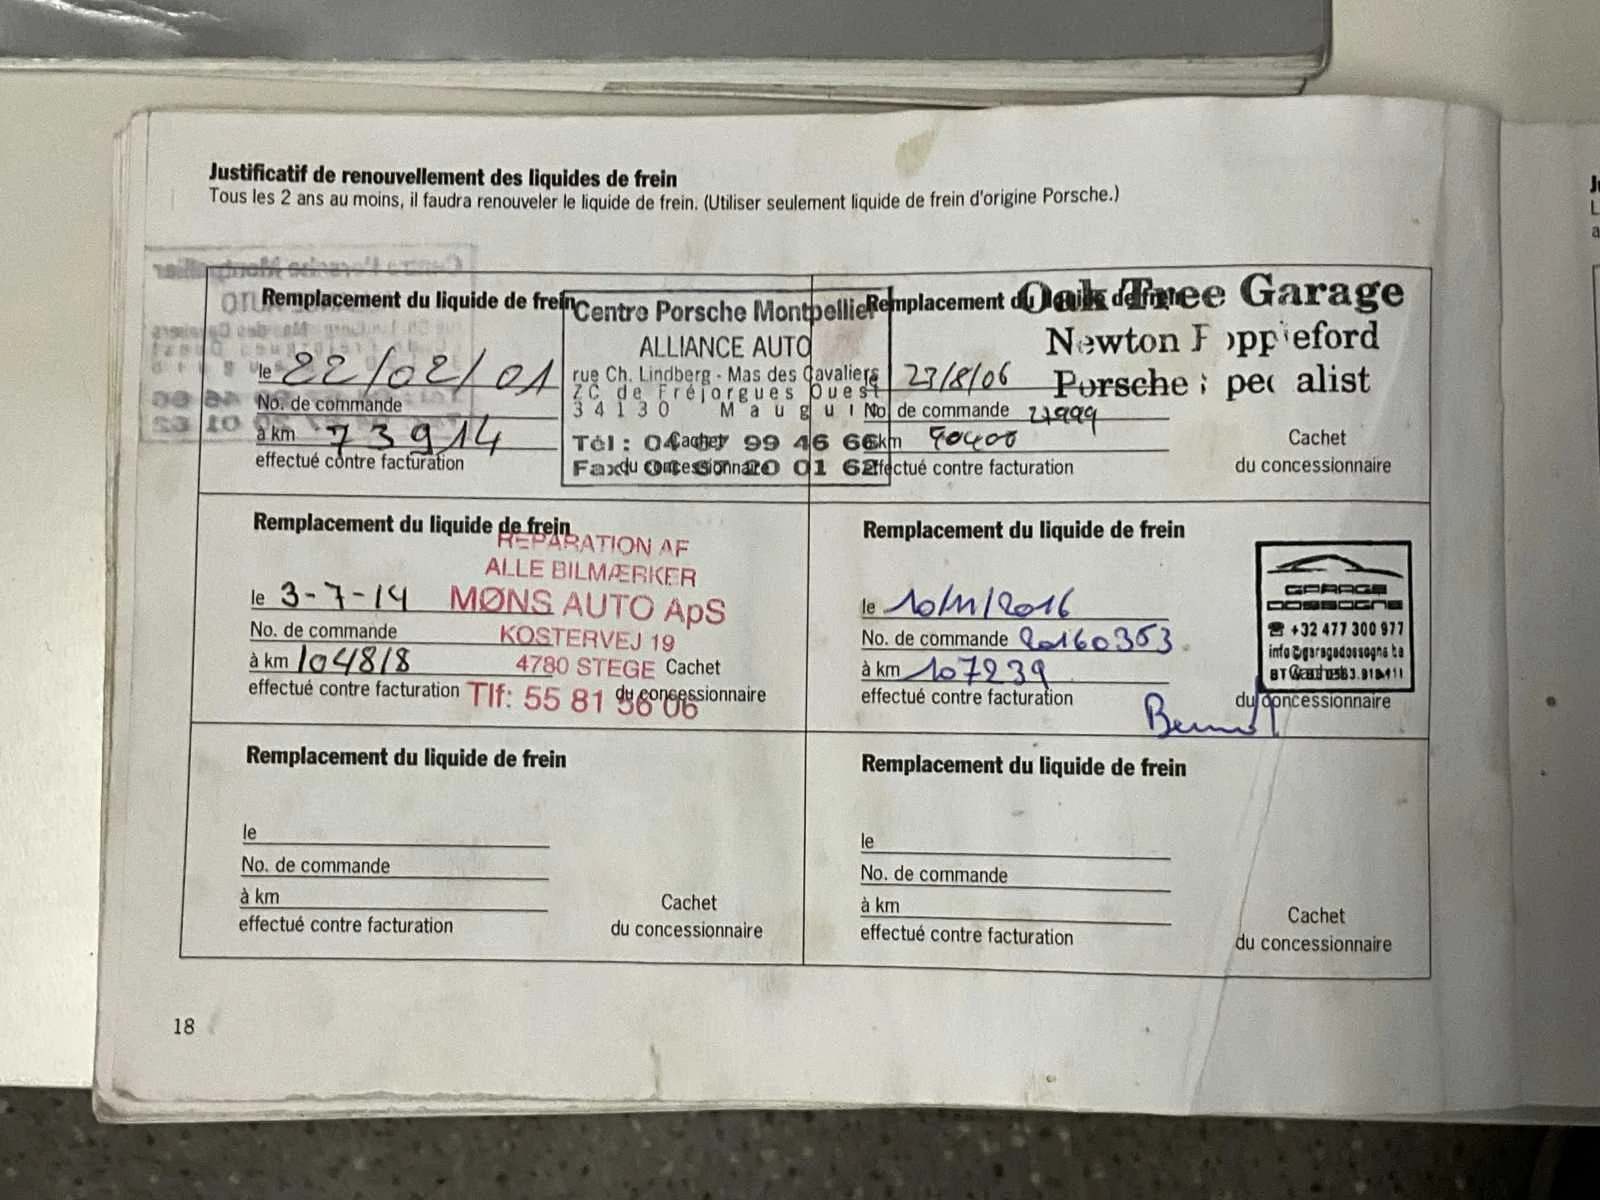 Justificatif de renouvellement des liquides de frein
Tous les 2 ans au moins, il faudra renouveler le liquide de frein. (Utiliser seulement liquide de frein d'origine Porsche.)
Remplacement du liquide de frein
le 22/02/01
No. de commande
à km 73914
effectué contre facturation
Centre Porsche Montpellier
ALLIANCE AUTO
rue Ch. Lindberg - Mas des Cavaliers
ZC de Fréjorgues Ouest
34130 Mauguio
Tél: 04 99 46 66
Fax 20 01 62
Cachet
du concessionnaire
Remplacement du liquide de frein
le 23/8/06
No. de commande 27999
à km 90400
effectué contre facturation
Oak Tree Garage
Newton Poppleford
Porsche specialist
Cachet
du concessionnaire
Remplacement du liquide de frein
le 3-7-14
No. de commande
à km 104818
effectué contre facturation
REPARATION AF
ALLE BILMÆRKER
MØNS AUTO ApS
KOSTERVEJ 19
4780 STEGE
Tlf: 55 81 56 06
Cachet
du concessionnaire
Remplacement du liquide de frein
le 10/11/2016
No. de commande 20160353
à km 107239
effectué contre facturation
GARAGE
DOSSOGNE
☎ +32 477 300 977
info@garagedossogne.be
Cachet
du concessionnaire
Remplacement du liquide de frein
le
No. de commande
à km
effectué contre facturation
Cachet
du concessionnaire
Remplacement du liquide de frein
le
No. de commande
à km
effectué contre facturation
Cachet
du concessionnaire
18